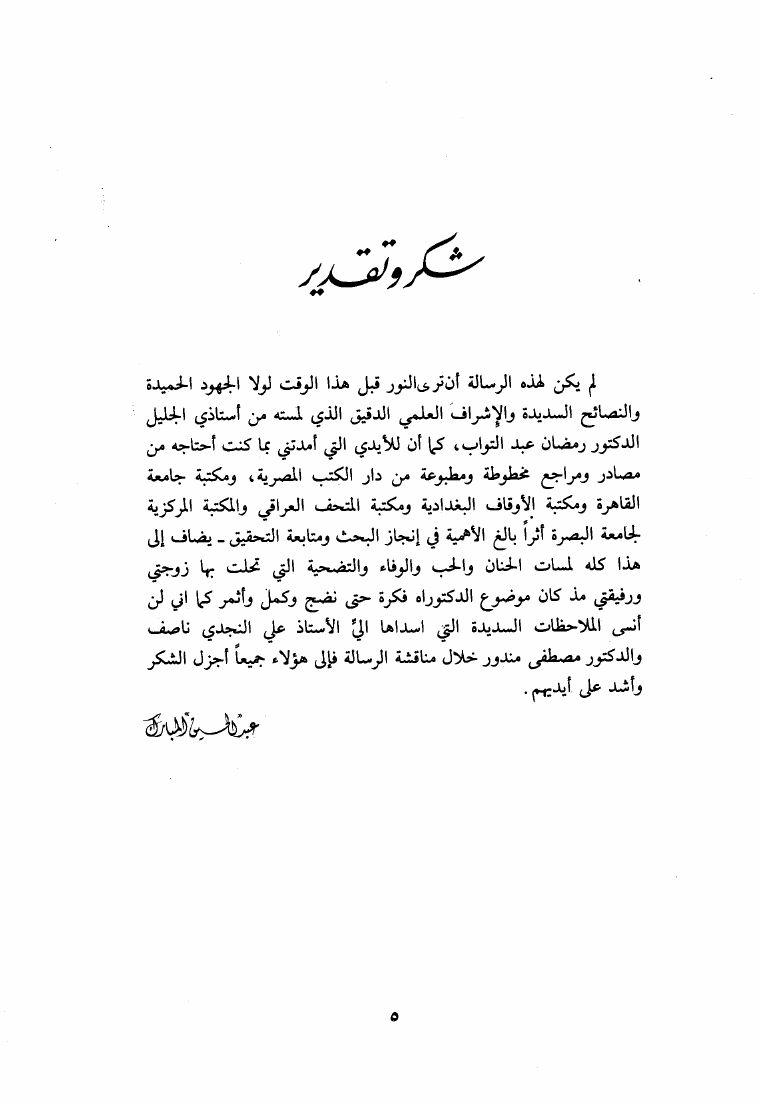 شكر وتقدير
لم يكن لهذه الرسالة أن ترى النور قبل هذا الوقت لولا الجهود الحميدة
والنصائح السديدة والإشراف العلمي الدقيق الذي لمسته من أستاذي الجليل
الدكتور رمضان عبد التواب، كما أن للأيدي التي أمدتني بما كنت أحتاجه من
مصادر ومراجع مخطوطة ومطبوعة من دار الكتب المصرية، ومكتبة جامعة
القاهرة ومكتبة الأوقاف البغدادية ومكتبة المتحف العراقي والمكتبة المركزية
لجامعة البصرة أثراً بالغ الأهمية في إنجاز البحث ومتابعة التحقيق - يضاف إلى
هذا كله لمسات الحنان والحب والوفاء والتضحية التي تحلت بها زوجتي
ورفيقتي مذ كان موضوع الدكتوراه فكرة حتى نضج وكمل وأثمر كما اني لن
أنسى الملاحظات السديدة التي اسداها اليّ الأستاذ علي النجدي ناصف
والدكتور مصطفى مندور خلال مناقشة الرسالة فإلى هؤلاء جميعاً أجزل الشكر
وأشد على أيديهم.
عبد الحسين المبارك
٥